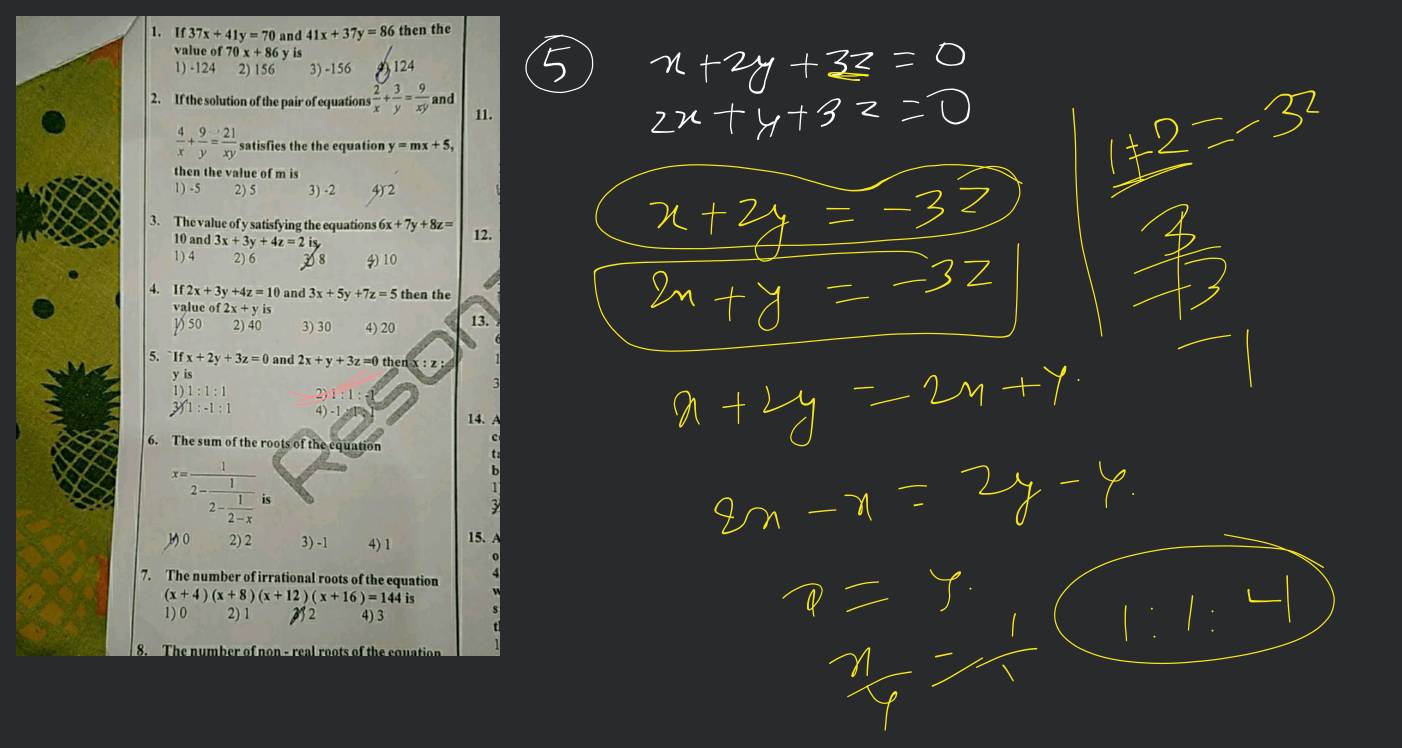 1. If 37x + 41y = 70 and 41x + 37y = 86 then the
value of 70 x + 86 y is
1) -124 2) 156 3) -156 4) 124
2. If the solution of the pair of equations 2/x + 3/y = 9/xy and
4/x + 9/y = 21/xy satisfies the the equation y = mx + 5,
then the value of m is
1) -5 2) 5 3) -2 4) 2
3. The value of y satisfying the equations 6x + 7y + 8z =
10 and 3x + 3y + 4z = 2 is
1) 4 2) 6 3) 8 4) 10
4. If 2x + 3y +4z = 10 and 3x + 5y +7z = 5 then the
value of 2x + y is
1) 50 2) 40 3) 30 4) 20
5. If x + 2y + 3z = 0 and 2x + y + 3z =0 then x : z :
y is
1) 1 : 1 : 1 2) 1 : 1 : -1
3) 1 : -1 : 1
6. The sum of the roots of the equation
x = 1/(2 - 1/(2 - 1/(2 - x))) is
1) 0 2) 2 3) -1 4) 1
7. The number of irrational roots of the equation
(x + 4) (x + 8) (x + 12) ( x + 16) = 144 is
1) 0 2) 1 3) 2 4) 3
8. The number of non - real roots of the equation
11.
12.
13.
14. A
15. A
Reson
5
x + 2y + 3z = 0
2x + y + 3z = 0
x + 2y = -3z
2x + y = -3z
x + 2y = 2x + y.
2x - x = 2y - y.
x = y.
x/y = 1/1
1+2 = -3z
3
-3
-1
1 : 1 : -1